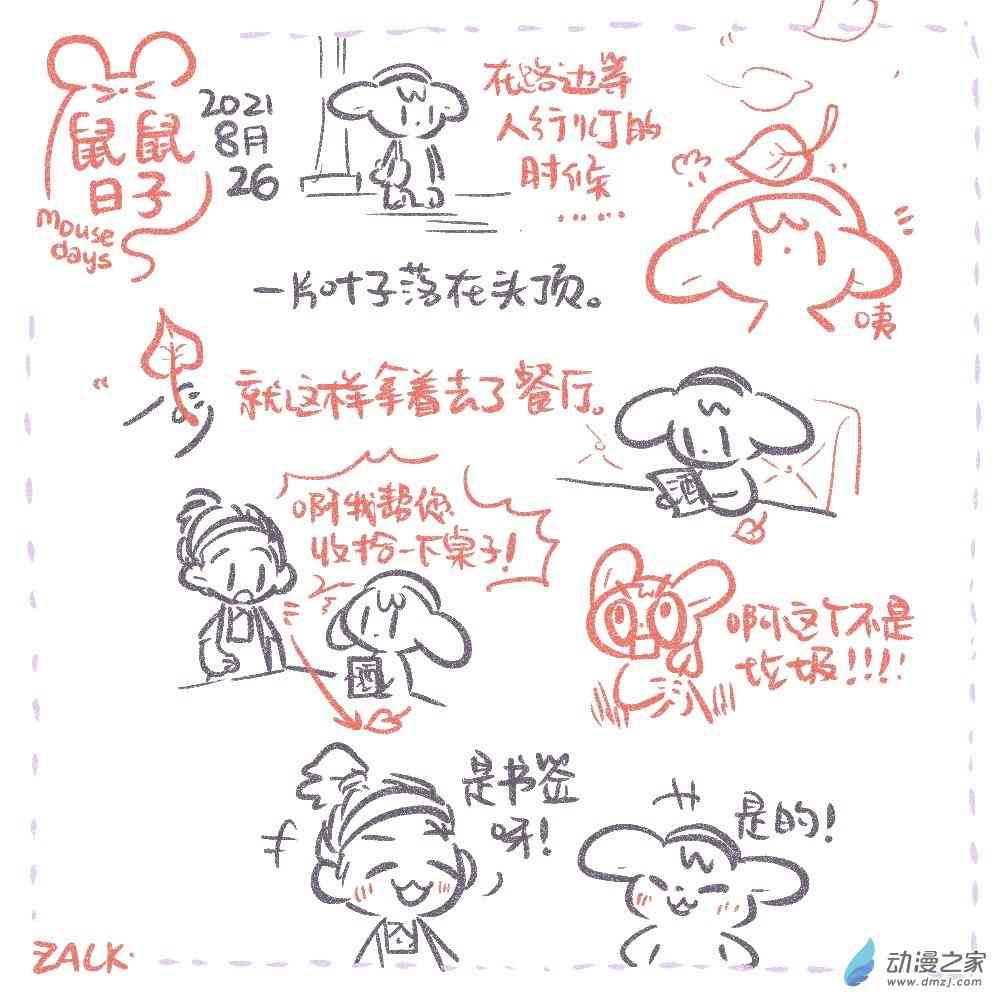 鼠鼠
日子
mouse
days
2021
8月
26
在路边等
人行灯的
时候
……
一片叶子落在头顶。
咦
就这样拿着去了餐厅。
啊我帮您
收拾一下桌子!
啊这个不是
垃圾!!!!
是书签
呀!
是的!
ZALK.
动漫之家
www.dmzj.com